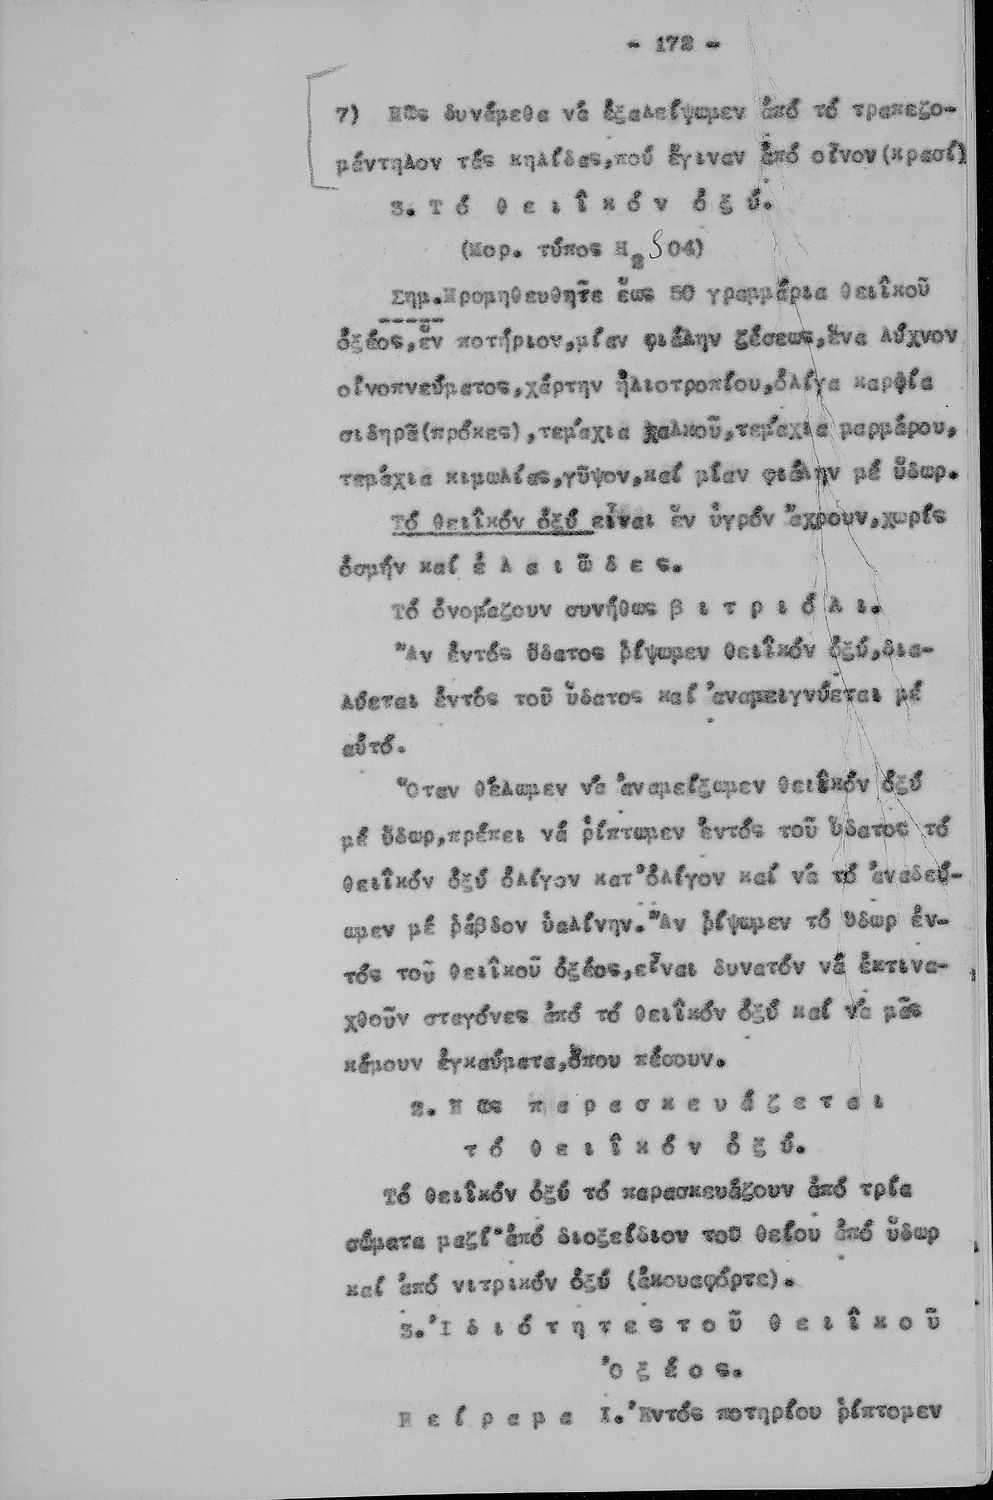 - 172 -
7) Πῶς δυνάμεθα νά ἐξαλείψωμεν ἀπό τό τραπεζο-
μάντηλον τάς κηλίδας,πού ἔγιναν ἀπό οἶνον(κρασί)
3. Τό θ ε ι ϊ κ ό ν ὀ ξ ύ.
(Μορ. τύπος H₂SO4)
Σημ.Προμηθευθῆτε ἕως 50 γραμμάρια θειϊκοῦ
ὀξέος,ἕν ποτήριον,μίαν φιάλην ζέσεως,ἕνα λύχνον
οἰνοπνεύματος,χάρτην ἡλιοτροπίου,ὀλίγα καρφία
σιδηρᾶ(πρόκες),τεμάχια χαλκοῦ,τεμάχια μαρμάρου,
τεμάχια κιμωλίας,γῦψον,καί μίαν φιάλην μέ ὕδωρ.
Τό θειϊκόν ὀξύ εἶναι ἕν ὑγρόν ἄχρουν,χωρίς
ὀσμήν καί ἐ λ α ι ῶ δ ε ς.
Τό ὀνομάζουν συνήθως β ι τ ρ ι ό λ ι.
Ἄν ἐντός ὕδατος ρίψωμεν θειϊκόν ὀξύ,δια-
λύεται ἐντός τοῦ ὕδατος καί ἀναμειγνύεται μέ
αὐτό.
Ὅταν θέλωμεν νά ἀναμείξωμεν θειϊκόν ὀξύ
μέ ὕδωρ,πρέπει νά ρίπτωμεν ἐντός τοῦ ὕδατος τό
θειϊκόν ὀξύ ὀλίγον κατ'ὀλίγον καί νά τό ἀναδεύ-
ωμεν μέ ράβδον ὑαλίνην.Ἄν ρίψωμεν τό ὕδωρ ἐν-
τός τοῦ θειϊκοῦ ὀξέος,εἶναι δυνατόν νά ἐκτινα-
χθοῦν σταγόνες ἀπό τό θειϊκόν ὀξύ καί νά μᾶς
κάμουν ἐγκαύματα,ὅπου πέσουν.
2. Π ῶς π α ρ α σ κ ε υ ά ζ ε τ α ι
τ ό θ ε ι ϊ κ ό ν ὀ ξ ύ.
Τό θειϊκόν ὀξύ τό παρασκευάζουν ἀπό τρία
σώματα μαζί·ἀπό διοξείδιον τοῦ θείου ἀπό ὕδωρ
καί ἀπό νιτρικόν ὀξύ (ἀκουαφόρτε).
3. Ἰ δ ι ό τ η τ ε ς τ ο ῦ θ ε ι ϊ κ ο ῦ
ὀ ξ έ ο ς.
Π ε ί ρ α μ α I. Ἐντός ποτηρίου ρίπτομεν